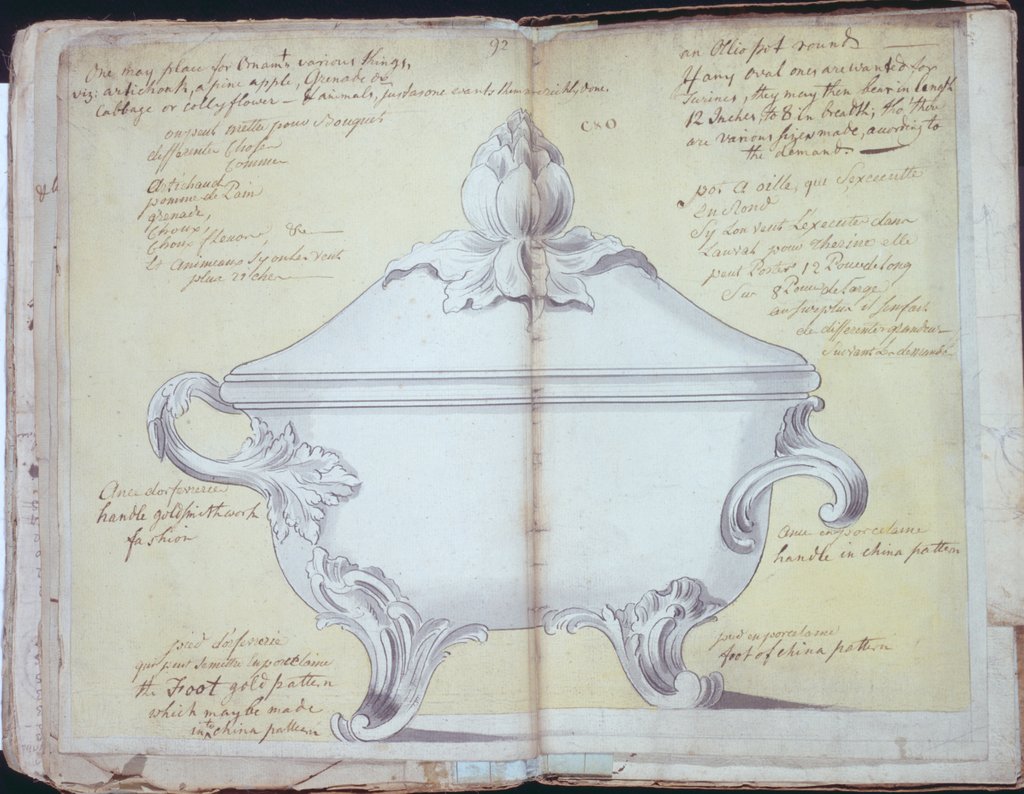 92
One may place for Ornamts various things,
viz: artichoak, a pine apple, Grenade or
Cabbage or collyflower — & animals, just as one wants them richly done.
on peut mettre pour Bouquet
différente Chose
Comme
Artichaud
pomme de Pain
grenade,
Choux,
Choux fleure, &c
Et Animeaux sy on les veut
plus riche
C80
an Ollio pot round
If any oval ones are wanted for
Turines, they may then bear in length
12 Inches, to 8 in breadth, tho' there
are various sizes made, according to
the demand.
pot a oille, que S'exceccutte
en Rond
Sy L'on veut L'executer dans
L'auval pour Therine elle
peut Porter 12 Pouce de Long
Sur 8 Pouce de Large
au surplus il s'en fait
de differente grandeur
Suivant La demande
Ance dorfeverie
handle goldsmith work
fashion
Ance en porcelaine
handle in china pattern
pied d'orfeverie
qui peut se mettre en porcelaine
the Foot gold pattern
which may be made
into china pattern
pied en porcelaine
foot of china pattern